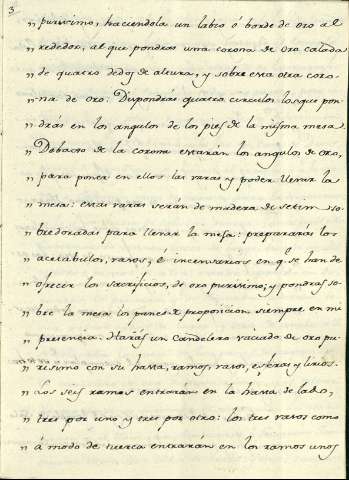 3
" purissimo, haciendola un labio ó borde de oro al
" rededor, al que pondras una corona de oro calada
" de quatro dedos de altura, y sobre esta otra coro-
" na de oro: Dispondrás quatro circulos los que pon-
" drás en los angulos de los pies de la misma mesa.
" Debaxo de la corona estarán los angulos de oro,
" para poner en ellos las varas y poder llevar la
" mesa: estas varas serán de madera de setim so-
" bredoradas para llevar la mesa: prepararás los
" acetabulos, vasos, é incensarios en q.e se han de
" ofrecer los sacrificios, de oro purissimo; y pondras so-
" bre la mesa los panes de proposicion siempre en mi
" presencia. Harás un candelero vaciado de oro pu-
" risimo con su hasta, ramos, vasos, esferas y lirios.
" Los seis ramos entrarán en la hasta de lado,
" tres por uno y tres por otro: los tres vasos como
" á modo de nuerca entrarán en los ramos unos